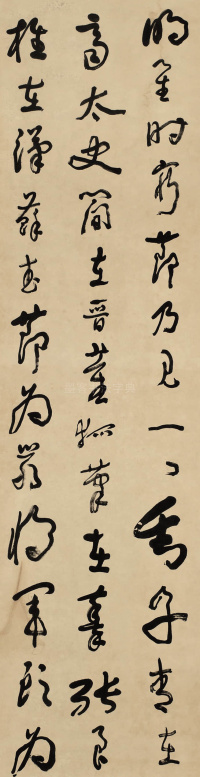 明庭時窮節乃見一一垂丹青在
齊太史簡在晉董狐筆在秦張良
椎在漢蘇武節為嚴將軍頭為